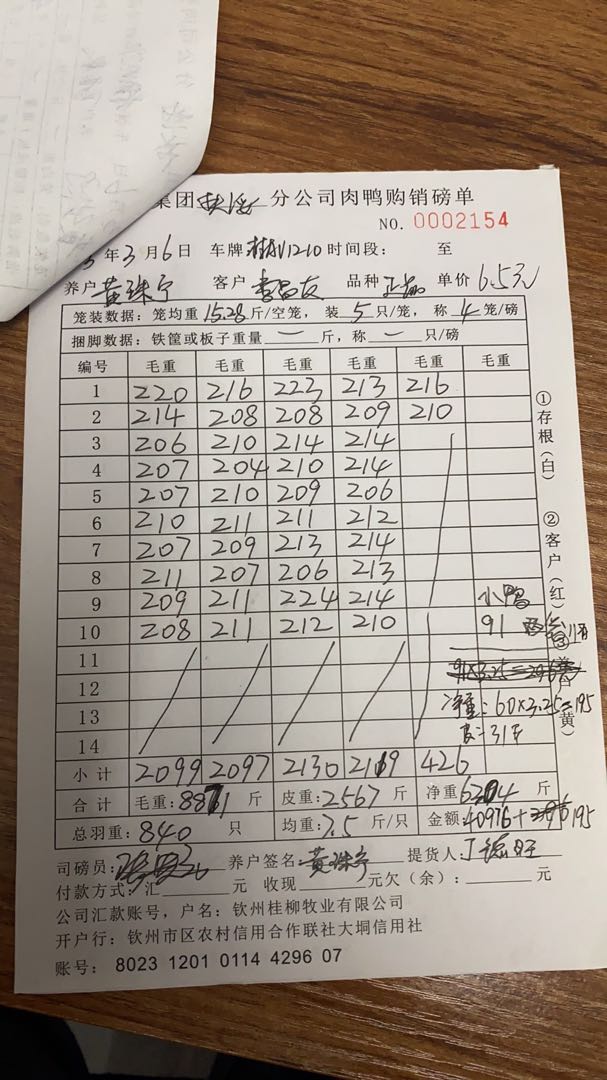 集团 分公司肉鸭购销磅单
NO. 0002154
年3月6日 车牌 1210 时间段: 至
养户 黄珠宁 客户 李昌友 品种 正 单价 6.53元
笼装数据:笼均重 15.28 斤/空笼,装 5 只/笼,称 4 笼/磅
捆脚数据:铁筐或板子重量 — 斤,称 — 只/磅
编号 毛重 毛重 毛重 毛重 毛重 毛重
1 220 216 223 213 216
2 214 208 208 209 210
3 206 210 214 214
4 207 204 210 214
5 207 210 209 206
6 210 211 211 212
7 207 209 213 214
8 211 207 206 213
9 209 211 224 214 小鸭
10 208 211 212 210 91
11
12 91×3.25=296
13 净重:60×3.25=195
14 皮:31斤
小计 2099 2097 2130 2119 426
合计 毛重:8871 斤 皮重:2567 斤 净重 6304 斤
总羽重: 840 只 均重: 7.5 斤/只 金额:40976+296 195
司磅员: 养户签名: 黄珠宁 提货人:
付款方式:汇 元 收现 元欠(余): 元
公司汇款账号,户名:钦州桂柳牧业有限公司
开户行:钦州市区农村信用合作联社大垌信用社
账号: 8023 1201 0114 4296 07
①存根(白)
②客户(红)
③ 黄)